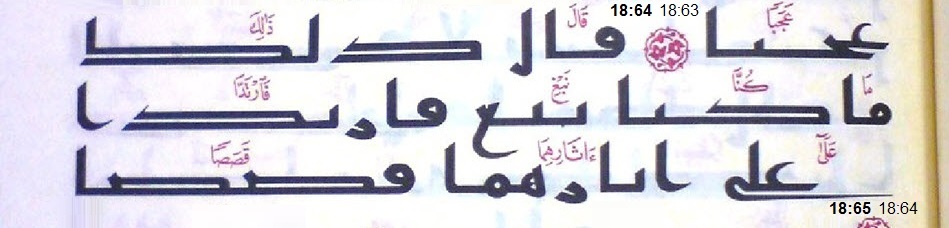 18:64 18:63
عَجَبًا قَالَ ذَٰلِكَ
عجبا قال ذلك
مَا كُنَّا نَبْغِ فَٱرْتَدَّا
ما كنا نبغ فارتدا
عَلَىٰٓ ءَاثَارِهِمَا قَصَصًا
على اثارهما قصصا
18:65 18:64